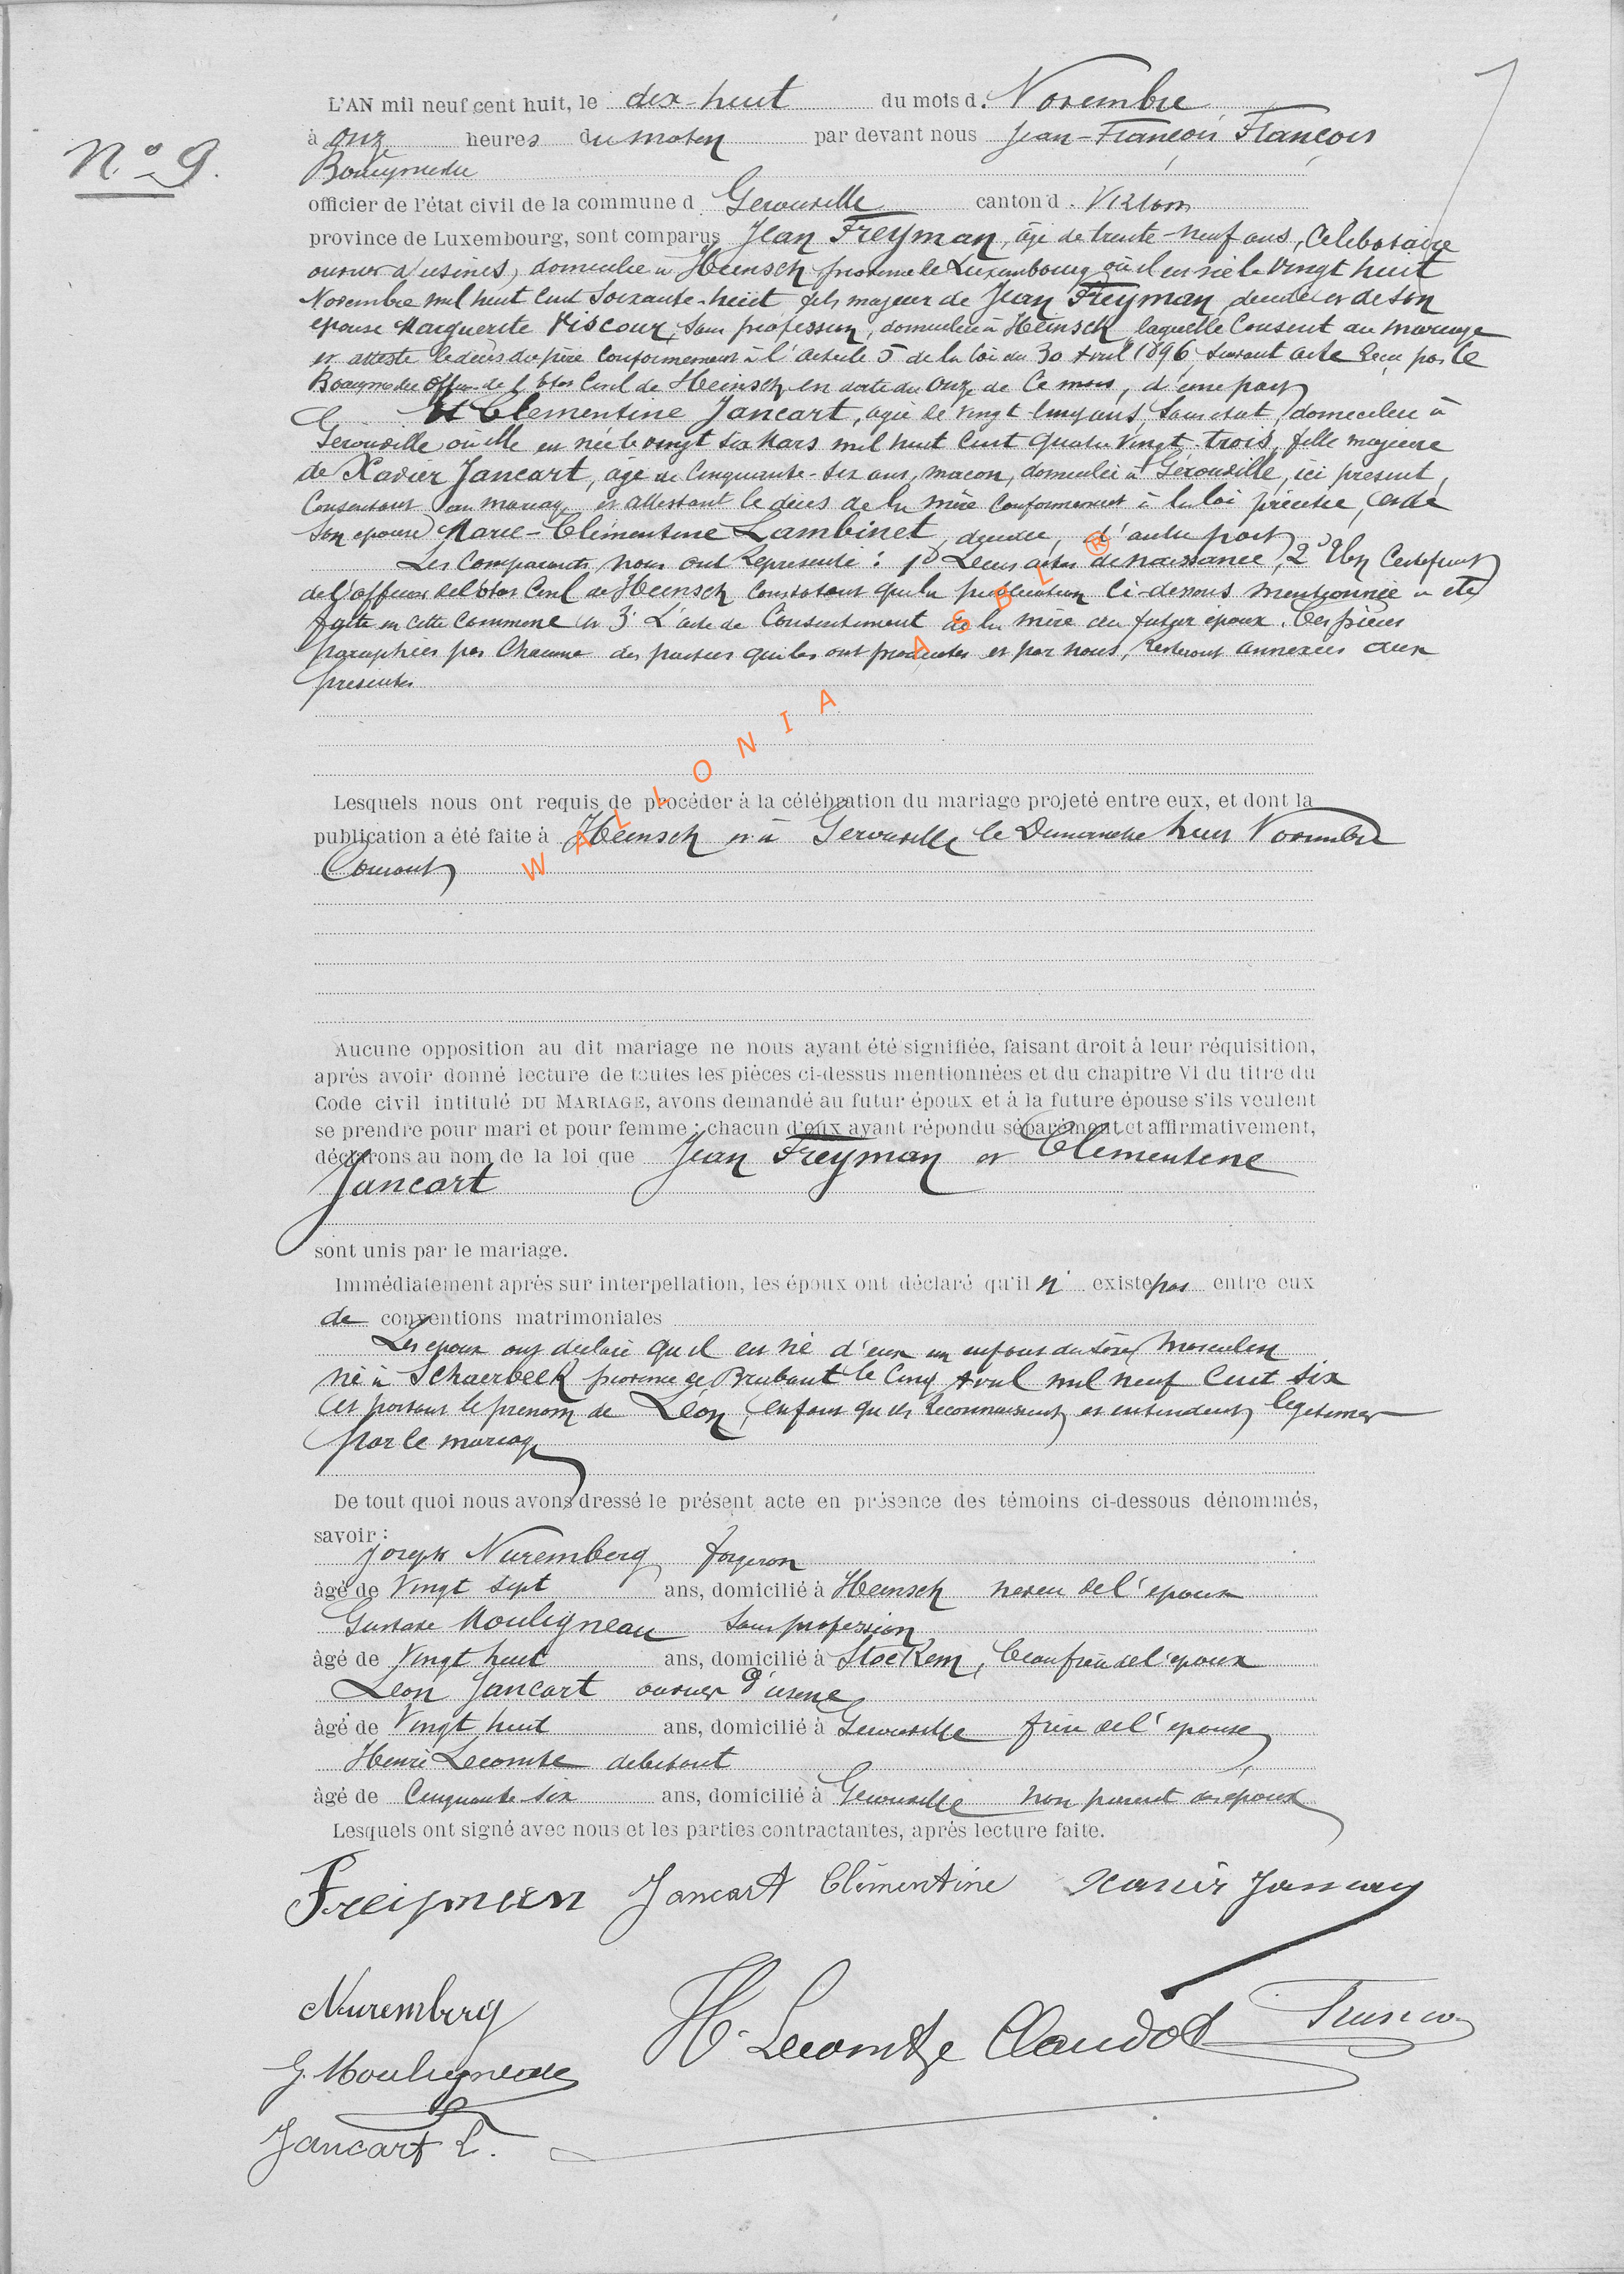 N.º 9.
L'AN mil neuf cent huit, le dix-huit du mois d. Novembre
à onze heures du matin par devant nous Jean-François François
Bourgmestre
officier de l'état civil de la commune d Gerouville canton d. Virton
province de Luxembourg, sont comparus Jean Freyman, âgé de trente-neuf ans, Célibataire
ouvrier d'usines, domicilié à Heinsch province de Luxembourg où il est né le vingt huit
Novembre mil huit cent soixante-huit fils majeur de Jean Freyman, décédé et de son
épouse Marguerite Viscour, sans profession, domiciliée à Heinsch laquelle consent au mariage
et atteste le décès du père conformément à l'article 5 de la loi du 30 Avril 1896, suivant acte reçu par le
Bourgmestre officier de l'état civil de Heinsch en date du onze de ce mois, d'une part
Et Clementine Jancart, agée de vingt-cinq ans, sans état, domiciliée à
Gerouville où elle est née le vingt six Mars mil huit cent quatre vingt-trois, fille majeure
de Xavier Jancart, âgé de cinquante-six ans, macon, domicilié à Gérouville, ici présent,
consentant au mariage et attestant le décès de la mère conformément à la loi précitée, et de
son épouse Marie-Clémentine Lambinet, décédée, d'autre part
Les comparants nous ont représenté : 1º Leurs actes de naissance, 2º Un certificat
de l'officier de l'état civil de Heinsch constatant que la publication ci-dessous mentionnée a été
faite en cette commune et 3º L'acte de consentement de la mère du futur époux. Ces pièces
paraphées par chacune des parties qui les ont produites et par nous, resteront annexées aux
présentes
WALLONIA ASBL ®
Lesquels nous ont requis de procéder à la célébration du mariage projeté entre eux, et dont la
publication a été faite à Heinsch et à Gerouville le Dimanche huit Novembre
Courant
Aucune opposition au dit mariage ne nous ayant été signifiée, faisant droit à leur réquisition,
après avoir donné lecture de toutes les pièces ci-dessus mentionnées et du chapitre VI du titre du
Code civil intitulé DU MARIAGE, avons demandé au futur époux et à la future épouse s'ils veulent
se prendre pour mari et pour femme ; chacun d'eux ayant répondu séparément et affirmativement,
déclarons au nom de la loi que Jean Freyman et Clementine
Jancart
sont unis par le mariage.
Immédiatement après sur interpellation, les époux ont déclaré qu'il n' existe pas entre eux
de conventions matrimoniales
Les époux ont déclaré qu'il est né d'eux un enfant du sexe masculin
né à Schaerbeek province de Brabant le cinq Avril mil neuf cent six
et portant le prénom de Léon, enfant qu'ils reconnaissent et entendent légitimer
par le mariage
De tout quoi nous avons dressé le présent acte en présence des témoins ci-dessous dénommés,
savoir :
Joseph Nuremberg forgeron
âgé de Vingt sept ans, domicilié à Heinsch neveu de l'époux
Gustave Mouligneau sans profession
âgé de Vingt huit ans, domicilié à Stockem, beau frère de l'époux
Léon Jancart ouvrier d'usine
âgé de Vingt huit ans, domicilié à Gerouville frère de l'épouse
Henri Lecomte debitant
âgé de Cinquante-six ans, domicilié à Gerouville non parent des époux
Lesquels ont signé avec nous et les parties contractantes, après lecture faite.
Freijman Jancart Clémentine Xavier Jancart
Nuremberg H. Lecomte Claudot
G. Mouligneau
Jancart L.